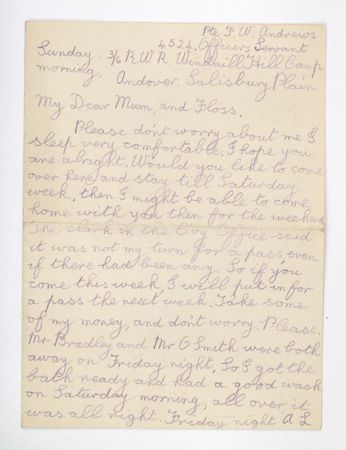 Pte F. W. Andrews
4524. Officers Servant
Sunday. 3/6 R W R Windmill Hill Camp
morning. Andover. Salisbury Plain
My Dear Mum, and Floss.
Please don't worry about me I
sleep very comfortable. I hope you
are alright. Would you like to come
over here, and stay till Saturday
week, then I might be able to come
home with you then for the weekend
The clark in the Coy Office said
it was not my turn for a pass, even
if there had been any. So if you
come this week, I will put in for
a pass the next week. Take some
of my money, and don't worry. Please.
Mr Bradley and Mr O Smith were both
away on Friday night, So I got the
bath ready and had a good wash
on Saturday morning, all over it
was all right. Friday night A L